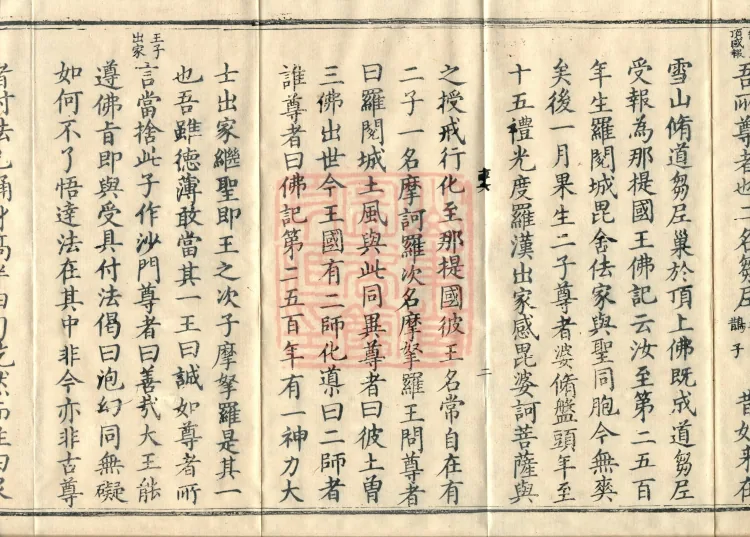 吾所尊者也二名芻尼鵲子昔如來在
雪山脩道芻尼巢於頂上佛既成道芻尼
受報為那提國王佛記云汝至第二五百
年生羅閱城毘舍佉家與聖同胞今無爽
矣後一月果生二子尊者婆脩盤頭年至
十五禮光度羅漢出家感毘婆訶菩薩與
二
之授戒行化至那提國彼王名常自在有
二子一名摩訶羅次名摩拏羅王問尊者
曰羅閱城土風與此同異尊者曰彼土曾
三佛出世今王國有二師化導曰二師者
誰尊者曰佛記第二五百年有一神力大
士出家繼聖即王之次子摩拏羅是其一
也吾雖德薄敢當其一王曰誠如尊者所
王子
出家
言當捨此子作沙門尊者曰善哉大王能
遵佛旨即與受具付法偈曰泡幻同無礙
如何不了悟達法在其中非今亦非古尊
者付法已踊身高半由旬屹然而住